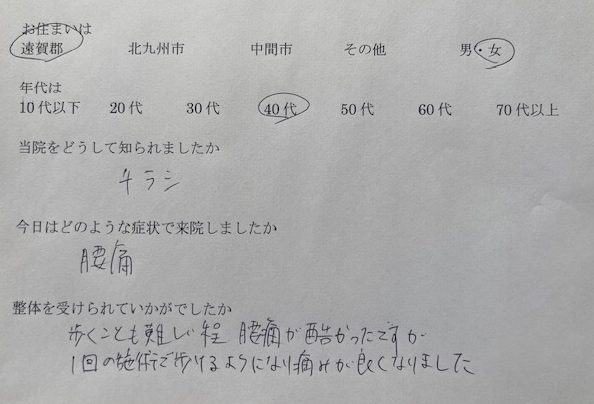 お住まいは
遠賀郡 北九州市 中間市 その他 男・女
年代は
10代以下 20代 30代 40代 50代 60代 70代以上
当院をどうして知られましたか
チラシ
今日はどのような症状で来院しましたか
腰痛
整体を受けられていかがでしたか
歩くことも難しい程 腰痛が酷かったですが
1回の施術で歩けるようになり痛みが良くなりました